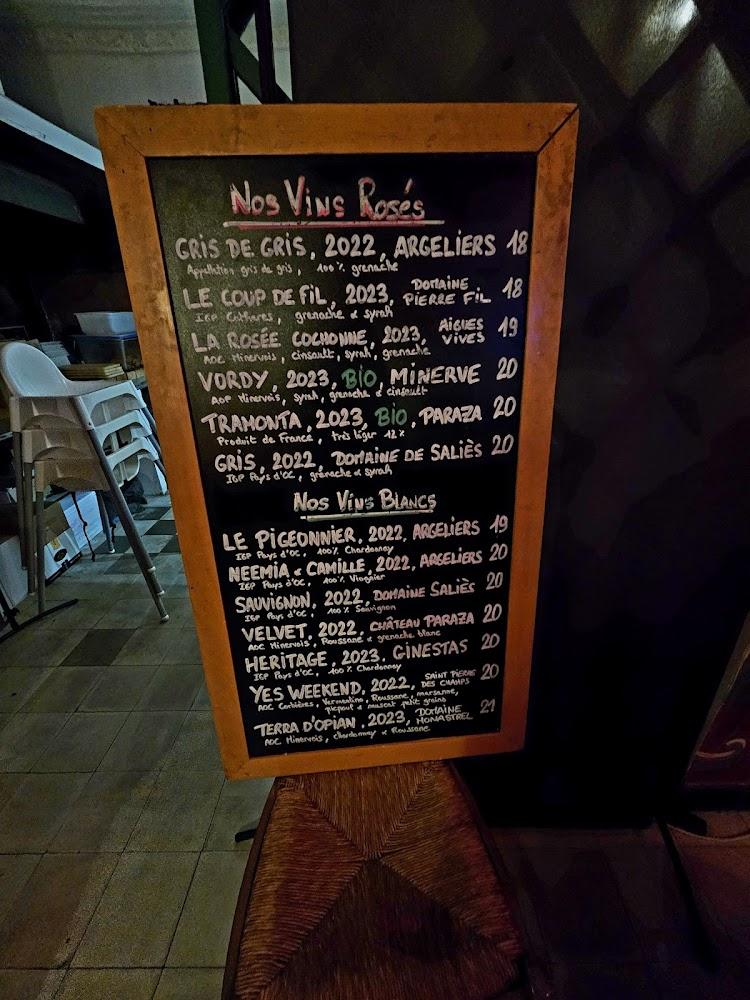 Nos Vins Rosés
GRIS DE GRIS, 2022, ARGELIERS 18
Appellation gris de gris, 100% grenache
LE COUP DE FIL, 2023, DOMAINE PIERRE FIL 18
IGP Cathares, grenache & syrah
LA ROSÉE COCHONNE, 2023, AIGUES VIVES 19
AOC Minervois, cinsault, syrah, grenache
VORDY, 2023, BIO, MINERVE 20
AOP Minervois, syrah, grenache & cinsault
TRAMONTA, 2023, BIO, PARAZA 20
Produit de France, très léger 12%
GRIS, 2022, DOMAINE DE SALIÈS 20
IGP Pays d'OC, grenache & syrah
Nos Vins Blancs
LE PIGEONNIER, 2022, ARGELIERS 19
IGP Pays d'OC, 100% Chardonnay
NEEMIA & CAMILLE, 2022, ARGELIERS 20
IGP Pays d'OC, 100% Viognier
SAUVIGNON, 2022, DOMAINE SALIÈS 20
IGP Pays d'OC, 100% Sauvignon
VELVET, 2022, CHÂTEAU PARAZA 20
AOC Minervois, Roussane & grenache blanc
HERITAGE, 2023, GINESTAS 20
IGP Pays d'OC, 100% Chardonnay
YES WEEKEND, 2022, SAINT PIERRE DES CHAMPS 20
AOC Corbières, Vermentino, Roussane, marsanne,
picpoul & muscat petit grains
TERRA D'OPIAN, 2023, DOMAINE MONASTREL 21
AOC Minervois, chardonnay & Roussane